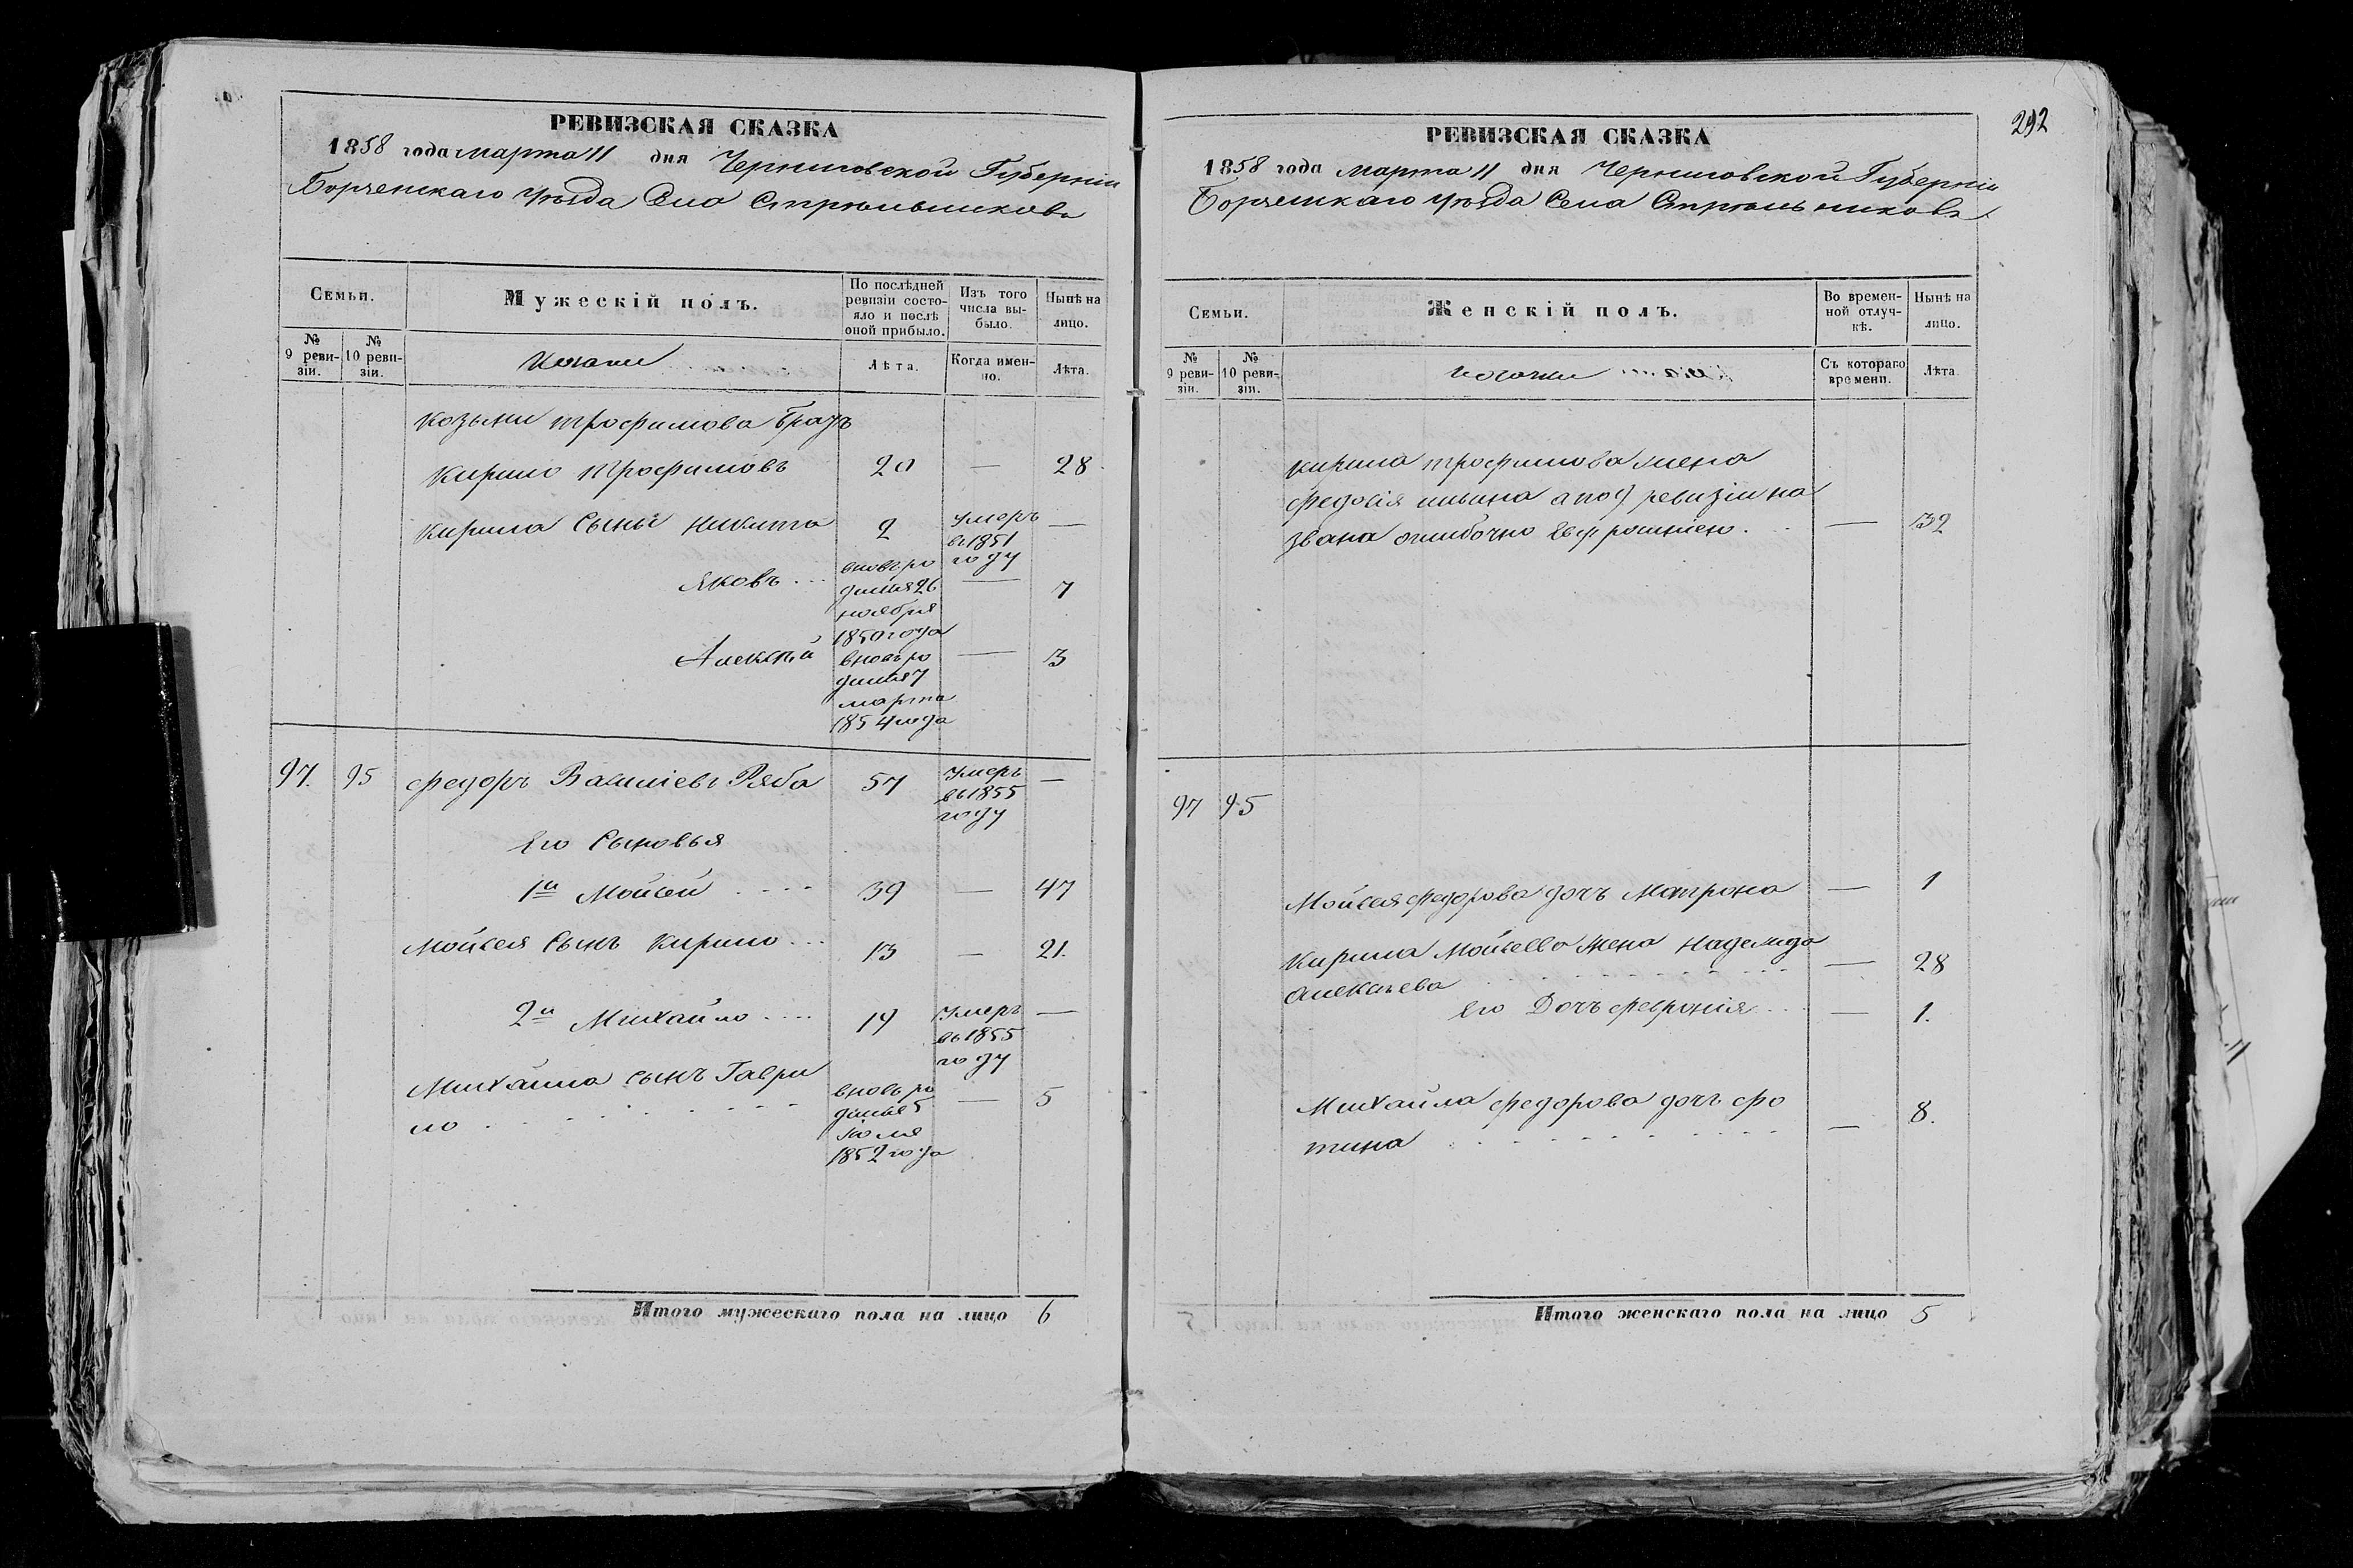 РЕВИЗСКАЯ СКАЗКА
1858 года марта 11 дня Черниговской Губерніи
Борзенскаго Уѣзда Села Стрѣльниковъ
Семьи.
Мужескій полъ.
По послѣдней ревизіи состояло и послѣ оной прибыло.
Изъ того числа выбыло.
Нынѣ на лицо.
№ 9 ревизіи.
№ 10 ревизіи.
Лѣта.
Когда именно.
Лѣта.
Козьми Трофимова братъ
Кирило Трофимовъ 20 — 28
Кирила Сыны Никита 2 Умеръ въ 1851 году —
Яковъ вновь родился 26 ноября 1850 года — 7
Алексѣй вновь родился 7 марта 1854 года — 3
97. 95 Федоръ Васильевъ Ряба 57 Умеръ въ 1855 году —
Его Сыновья
1й Мойсей 39 — 47
Мойсея Сынъ Кирило 13 — 21.
2й Михайло 19 Умеръ въ 1855 году —
Михайла сынъ Гаври
ло вновь родился 5 Іюля 1852 года — 5
Итого мужескаго пола на лицо 6
292
РЕВИЗСКАЯ СКАЗКА
1858 года марта 11 дня Черниговской Губерніи
Борзенскаго Уѣзда Села Стрѣльниковъ
Семьи.
Женскій полъ.
Во временной отлучкѣ.
Нынѣ на лицо.
№ 9 ревизіи.
№ 10 ревизіи.
Съ котораго времени.
Лѣта
Кирила Трофимова жена
Федосія ильина а по 9 ревизіи на
звана ошибочно — 32
97 95
Мойсея Федорова дочь Матрона — 1
Кирила Мойсеева Жена Надежда
Алексѣева — 28
Его Дочь Февронія — 1.
Михайла Федорова дочь Фо
тина — 8.
Итого женскаго пола на лицо 5